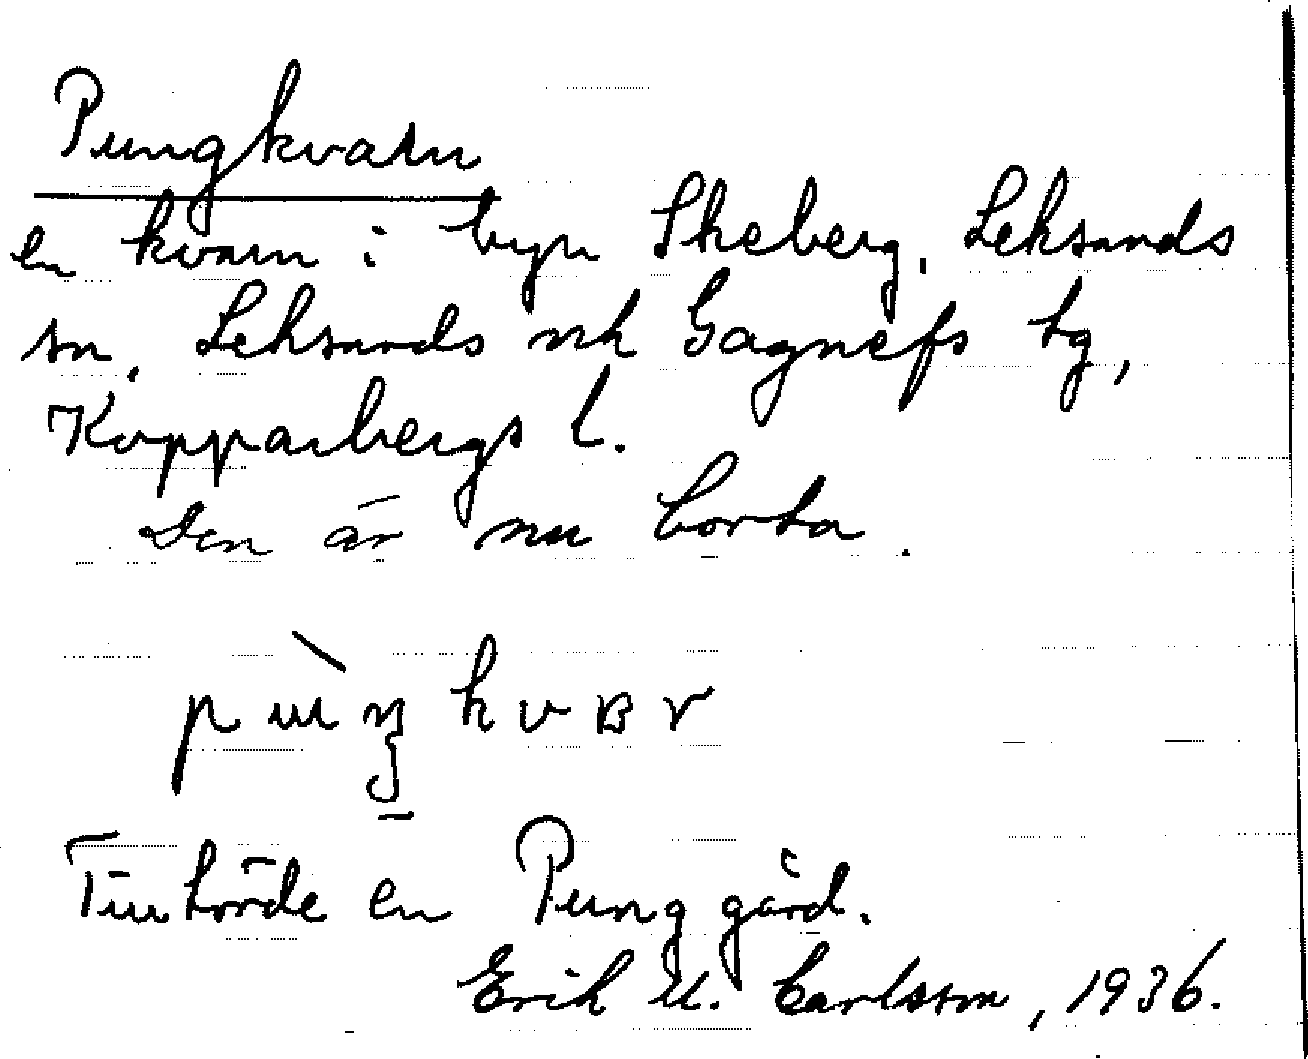 Pungkvarn
en kvarn i byn Skeberg, Leksands
sn, Leksands och Gagnefs tg,
Kopparbergs l.
Den är nu borta.
Tillhörde en Punggård.
Erik U. Carlsson, 1936.